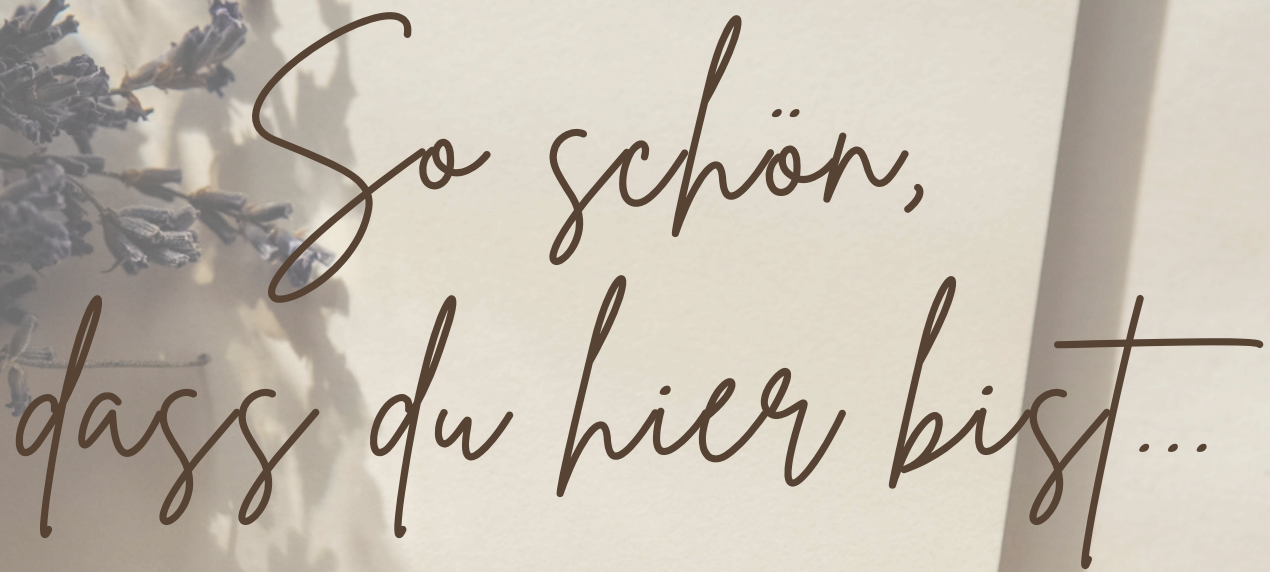 So schön,
dass du hier bist...